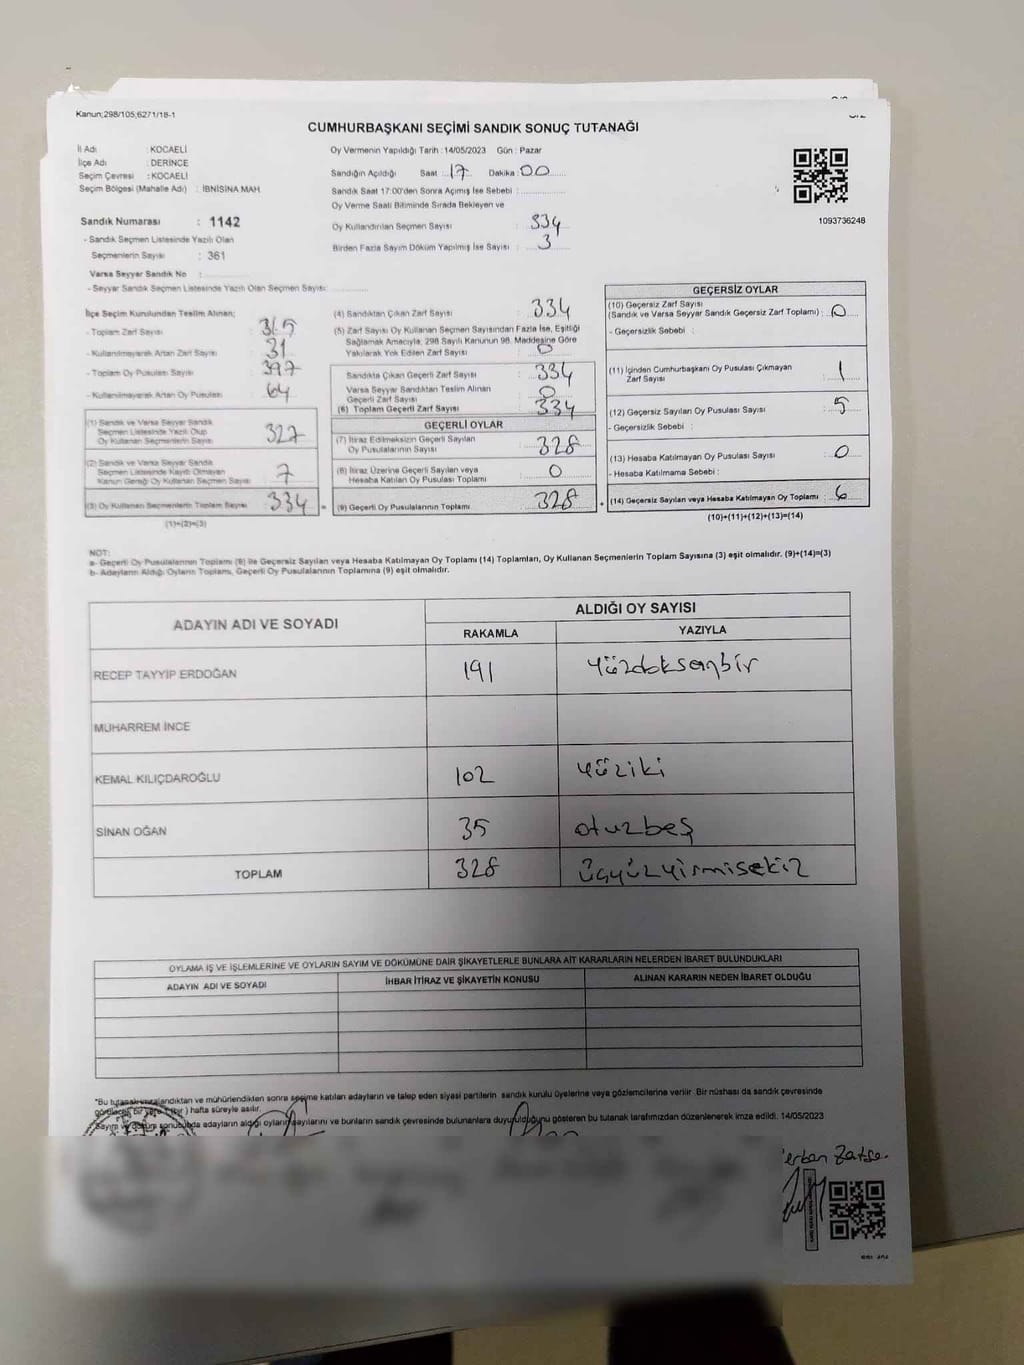 Kanun;298/105;6271/18-1
CUMHURBAŞKANI SEÇİMİ SANDIK SONUÇ TUTANAĞI
İl Adı : KOCAELİ
İlçe Adı : DERİNCE
Seçim Çevresi : KOCAELİ
Seçim Bölgesi (Mahalle Adı) : İBNİSİNA MAH.
Sandık Numarası : 1142
- Sandık Seçmen Listesinde Yazılı Olan
Seçmenlerin Sayısı : 361
Varsa Seyyar Sandık No :
- Seyyar Sandık Seçmen Listesinde Yazılı Olan Seçmen Sayısı:
Oy Vermenin Yapıldığı Tarih : 14/05/2023 Gün : Pazar
Sandığın Açıldığı Saat 17 Dakika : 00
Sandık Saat 17:00'den Sonra Açımış İse Sebebi :
Oy Verme Saati Bitiminde Sırada Bekleyen ve
Oy Kullandırılan Seçmen Sayısı : 334
Birden Fazla Sayım Döküm Yapılmış İse Sayısı : 3
1093736248
İlçe Seçim Kurulundan Teslim Alınan;
- Toplam Zarf Sayısı : 365
- Kullanılmayarak Artan Zarf Sayısı : 31
- Toplam Oy Pusulası Sayısı : 397
- Kullanılmayarak Artan Oy Pusulası : 64
(1) Sandık ve Varsa Seyyar Sandık
Seçmen Listesinde Yazılı Olup
Oy Kullanan Seçmenlerin Sayısı : 327
(2) Sandık ve Varsa Seyyar Sandık
Seçmen Listesinde Kayıtlı Olmayan
Kanun Gereği Oy Kullanan Seçmen Sayısı : 7
(3) Oy Kullanan Seçmenlerin Toplam Sayısı : 334
(1)+(2)=(3)
(4) Sandıktan Çıkan Zarf Sayısı : 334
(5) Zarf Sayısı Oy Kullanan Seçmen Sayısından Fazla İse, Eşitliği
Sağlamak Amacıyla, 298 Sayılı Kanunun 98. Maddesine Göre
Yakılarak Yok Edilen Zarf Sayısı : 0
Sandıkta Çıkan Geçerli Zarf Sayısı : 334
Varsa Seyyar Sandıktan Teslim Alınan
Geçerli Zarf Sayısı : 0
(6) Toplam Geçerli Zarf Sayısı : 334
GEÇERLİ OYLAR
(7) İtiraz Edilmeksizin Geçerli Sayılan
Oy Pusulalarının Sayısı : 328
(8) İtiraz Üzerine Geçerli Sayılan veya
Hesaba Katılan Oy Pusulası Toplamı : 0
= (9) Geçerli Oy Pusulalarının Toplamı : 328
GEÇERSİZ OYLAR
(10) Geçersiz Zarf Sayısı
(Sandık ve Varsa Seyyar Sandık Geçersiz Zarf Toplamı) : 0
- Geçersizlik Sebebi :
(11) İçinden Cumhurbaşkanı Oy Pusulası Çıkmayan
Zarf Sayısı : 1
(12) Geçersiz Sayılan Oy Pusulası Sayısı : 5
- Geçersizlik Sebebi :
(13) Hesaba Katılmayan Oy Pusulası Sayısı : 0
- Hesaba Katılmama Sebebi :
+ (14) Geçersiz Sayılan veya Hesaba Katılmayan Oy Toplamı : 6
(10)+(11)+(12)+(13)=(14)
NOT:
a- Geçerli Oy Pusulalarının Toplamı (9) ile Geçersiz Sayılan veya Hesaba Katılmayan Oy Toplamı (14) Toplamları, Oy Kullanan Seçmenlerin Toplam Sayısına (3) eşit olmalıdır. (9)+(14)=(3)
b- Adayların Aldığı Oyların Toplamı, Geçerli Oy Pusulalarının Toplamına (9) eşit olmalıdır.
ADAYIN ADI VE SOYADI
ALDIĞI OY SAYISI
RAKAMLA YAZIYLA
RECEP TAYYİP ERDOĞAN 191 yüzdoksanbir
MUHARREM İNCE
KEMAL KILIÇDAROĞLU 102 yüziki
SİNAN OĞAN 35 otuzbeş
TOPLAM 328 üçyüzyirmisekiz
OYLAMA İŞ VE İŞLEMLERİNE VE OYLARIN SAYIM VE DÖKÜMÜNE DAİR ŞİKAYETLERLE BUNLARA AİT KARARLARIN NELERDEN İBARET BULUNDUKLARI
ADAYIN ADI VE SOYADI İHBAR İTİRAZ VE ŞİKAYETİN KONUSU ALINAN KARARIN NEDEN İBARET OLDUĞU
"Bu tutanak imzalandıktan ve mühürlendikten sonra seçime katılan adayların ve talep eden siyasi partilerin sandık kurulu üyelerine veya gözlemcilerine verilir. Bir nüshası da sandık çevresinde
görülecek bir yere 1 (bir) hafta süreyle asılır.
Sayım ve döküm sonucunda adayların aldığı oyların sayılarını ve bunların sandık çevresinde bulunanlara duyurulduğunu gösteren bu tutanak tarafımızdan düzenlenerek imza edildi. 14/05/2023